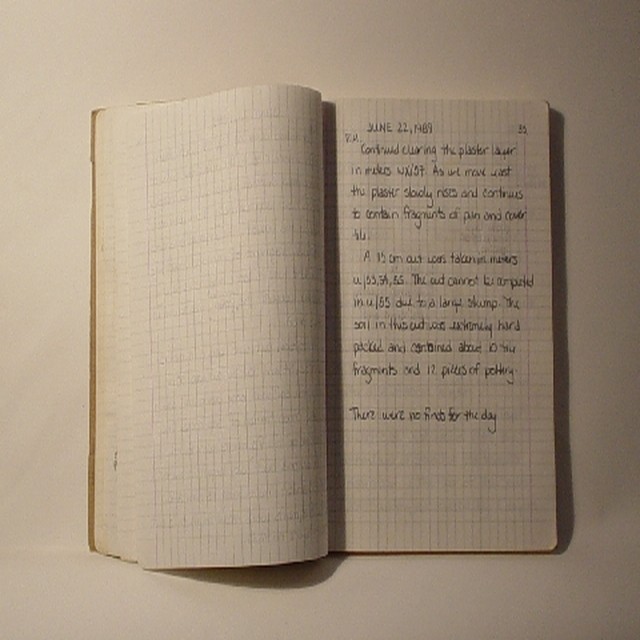 JUNE 22, 1989 35.
P.M.
Continued clearing the plaster layer
in meters WX/57. As we move east
the plaster slowly rises and continues
to contain fragments of pan and cover
tile.
A 15 cm cut was taken in meters
u/53,54,55. The cut cannot be completed
in u/55 due to a large stump. The
soil in this cut was extremely hard
packed and contained about 10 tile
fragments and 12 pieces of pottery.
There were no finds for the day